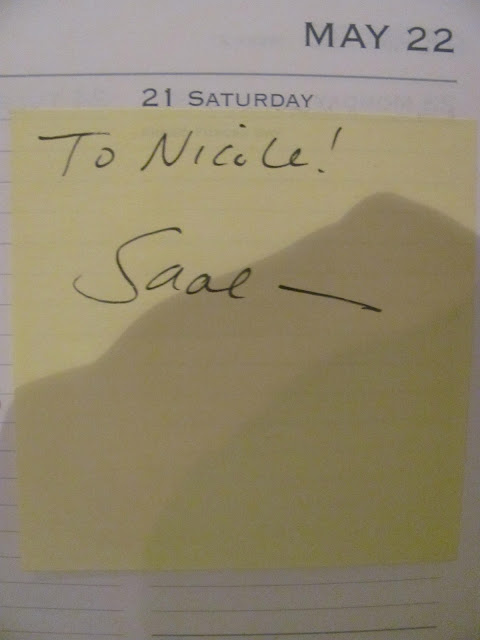 MAY 22
21 SATURDAY
To Nicole!